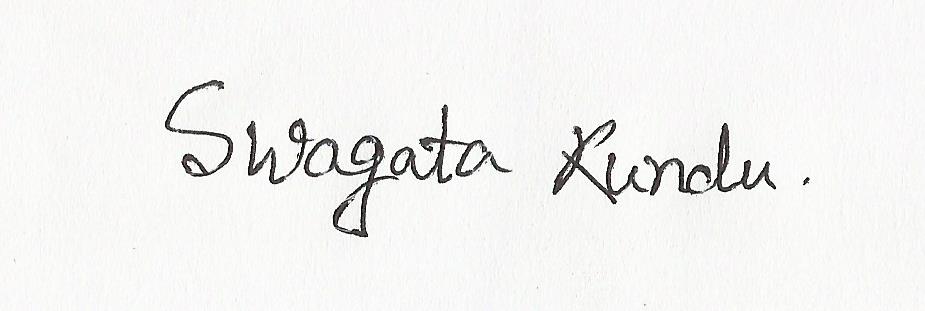 Swagata Kundu.